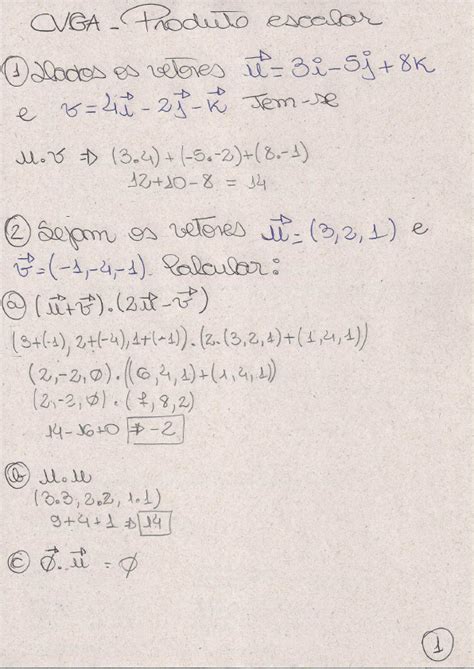 CVGA - Produto escalar
① Dados os vetores u⃗ = 3i - 5j + 8k
e v = 4i⃗ - 2j⃗ - k⃗ Tem-se
u.v ⇒ (3.4)+(-5.-2)+(8.-1)
12+10-8 = 14
② Sejam os vetores u⃗ = (3,2,1) e
v⃗ = (-1,-4,-1). Calcular:
ⓐ (u⃗+v⃗).(2u⃗-v⃗)
(3+(-1), 2+(-4), 1+(-1)).(2.(3,2,1)+(1,4,1))
(2,-2,0).((6,4,1)+(1,4,1))
(2,-2,0).(7,8,2)
14-16+0 ⇒ -2
ⓑ u.u
(3.3, 2.2, 1.1)
9+4+1 ⇒ 14
ⓒ 0⃗.u⃗ = 0
①